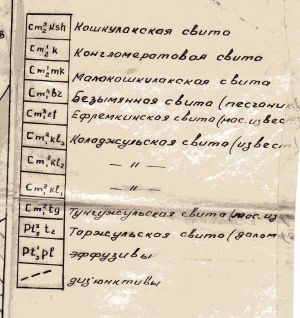 Cm₂² ksh Кошкулакская свита
Cm₂¹ k Конгломератовая свита
Cm₂¹ mk Малокошкулакская свита
Cm₁² bz Безымянная свита (песчаник
Cm₁² ef Ефремкинская свита (мас. извес
Cm₁² kl₃ Колоджульская свита (извест
Cm₁² kl₂ — " —
Cm₁² kl₁ — " —
Cm₁² tg Тунгужульская свита (мас. из
Pt₃³ tz Торжульская свита (долом
Pt₃³ pl эффузивы
дизъюнктивы